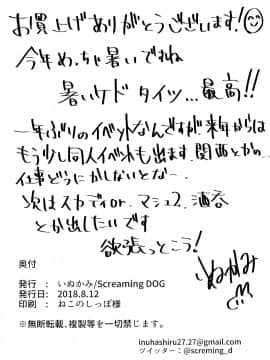 お買上げありがとうございます!
今年めっちゃ暑いですね
暑いケドタイツ…最高!!
一年ぶりのイベントなんですが来年からは
もう少し同人イベントも出ます。関西とかの…
仕事どうにかしないとなー…
次はスカディor、マシュ2、酒呑
とか出したいです
欲張っとこう!
いぬかみ
奥付
発行 : いぬかみ/Screaming DOG
発行日: 2018.8.12
印刷 : ねこのしっぽ様
※無断転載、複製等を一切禁じます。
inuhashiru27.27@gmail.com
ツイッター:@screming_d